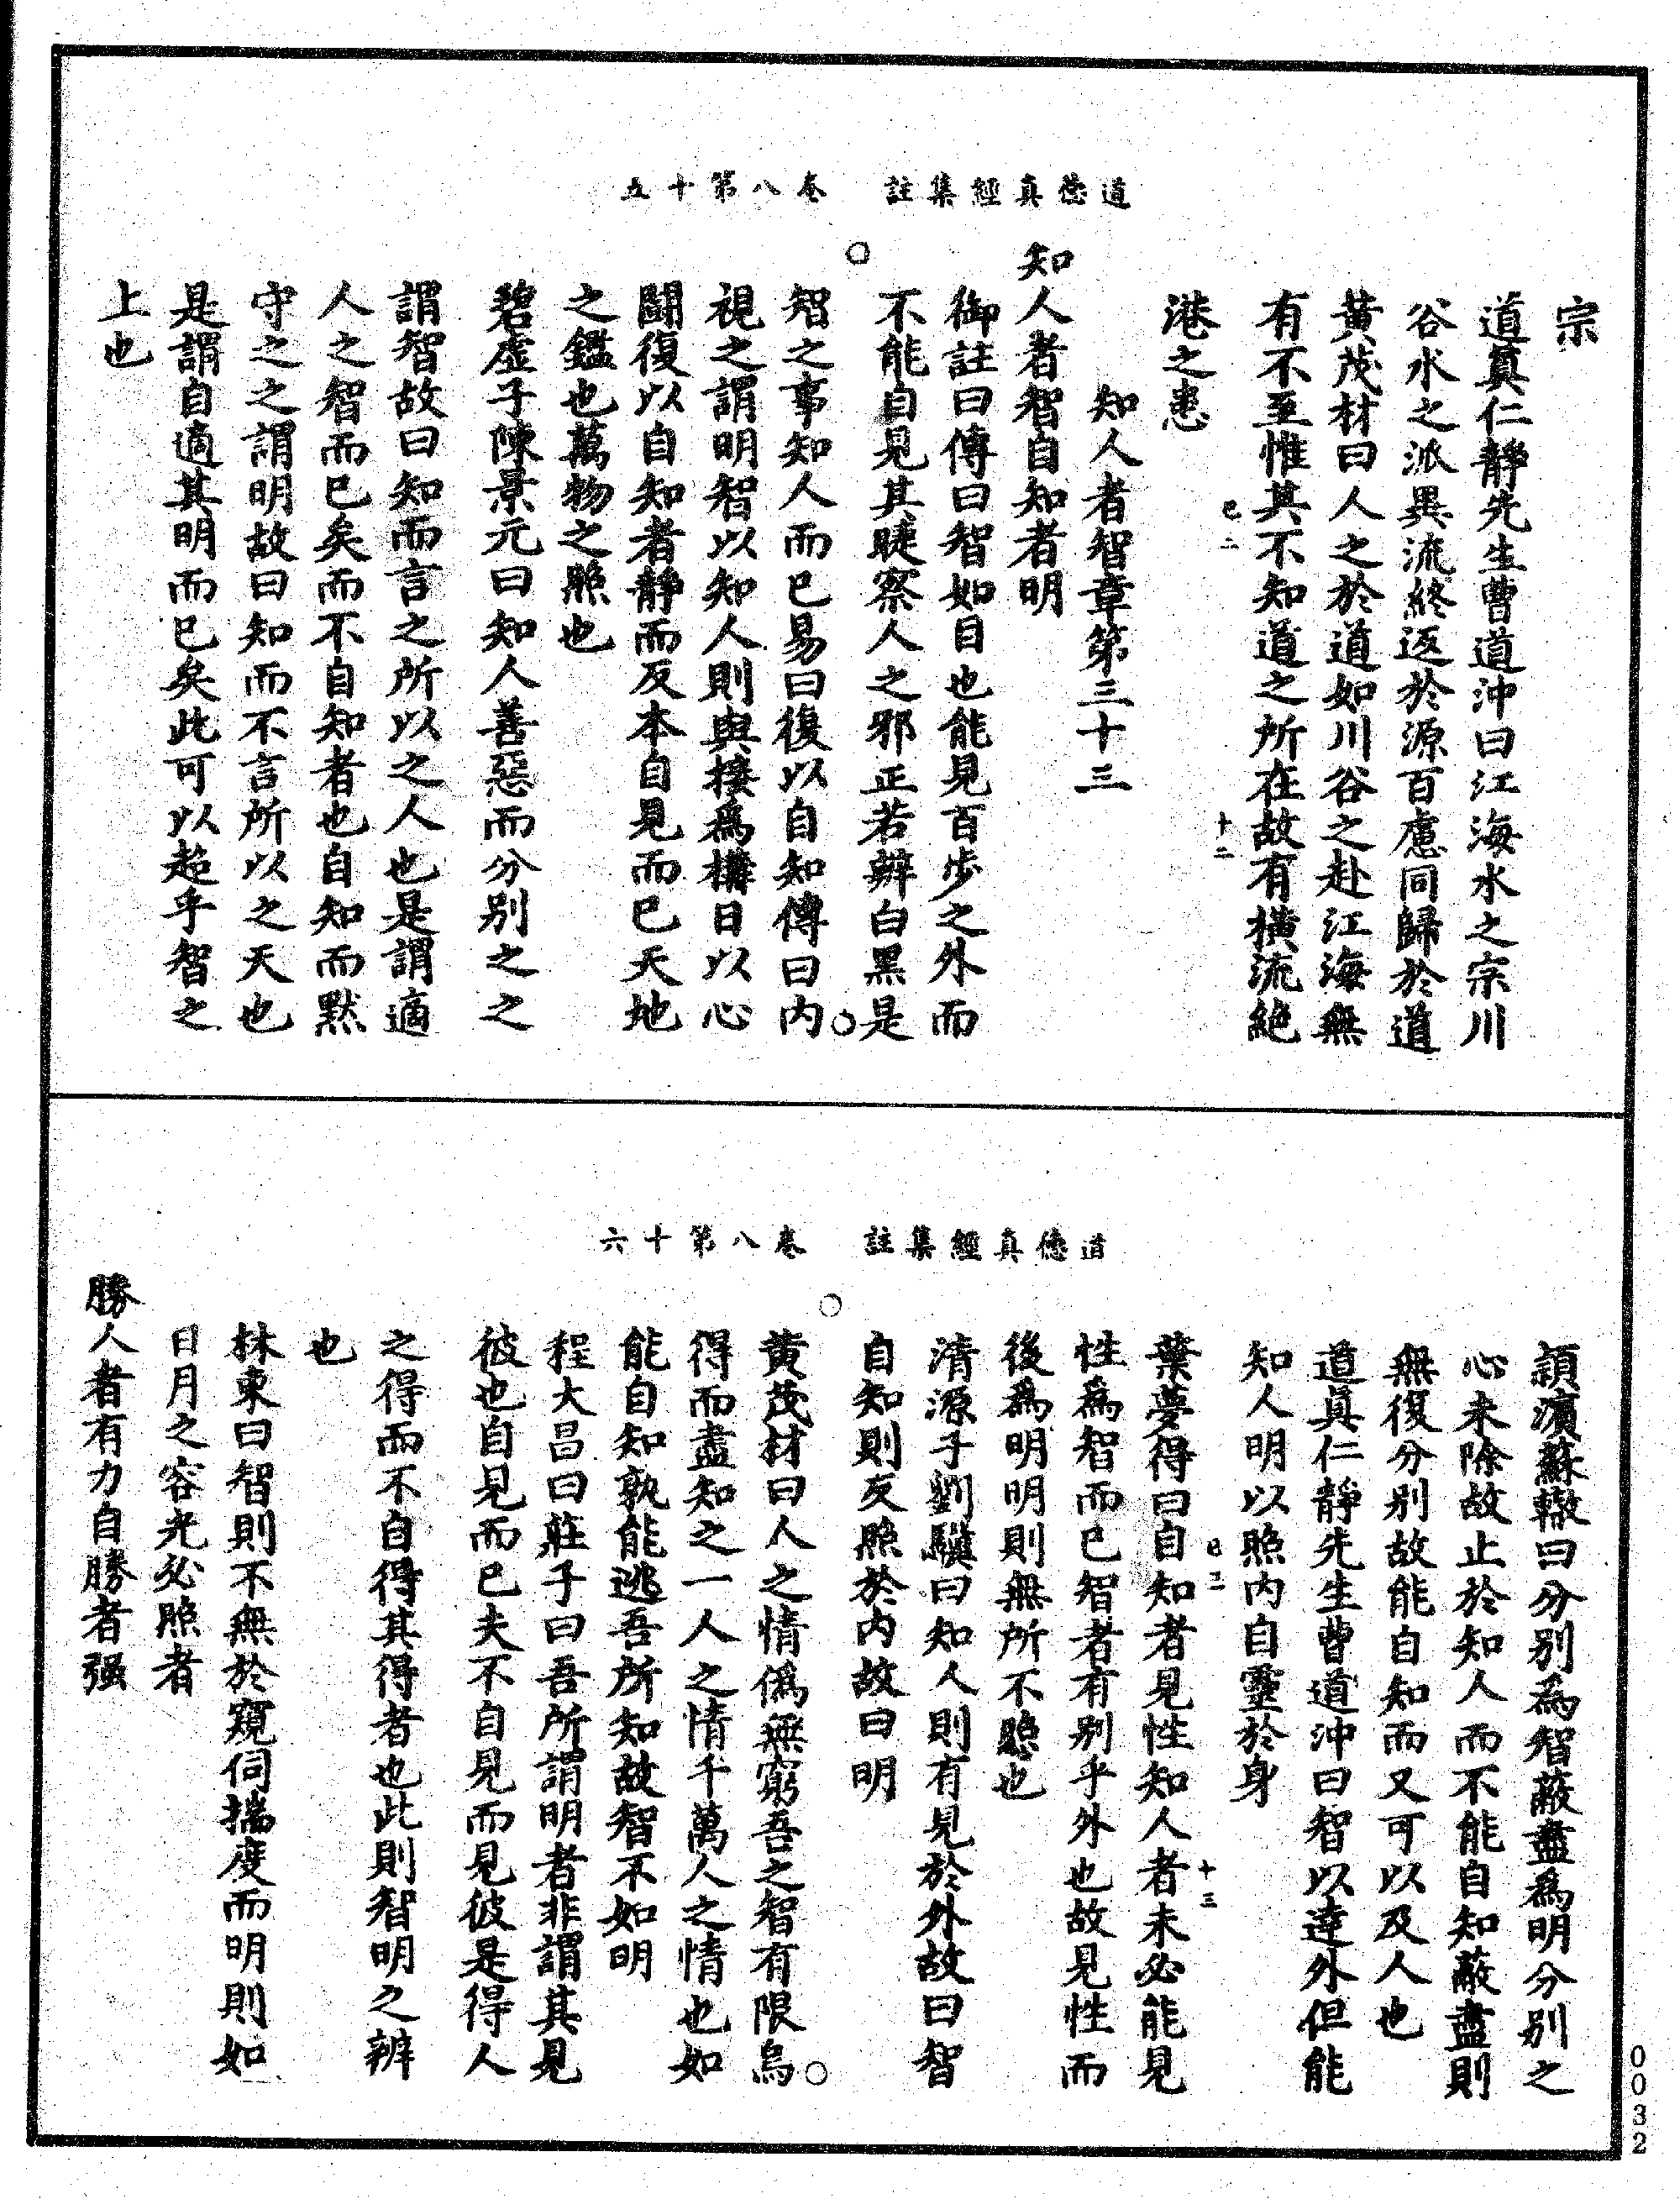 道德真經集註 卷八第十五
宗
道真仁靜先生曹道沖曰江海水之宗川
谷水之派異流終返於源百慮同歸於道
黃茂材曰人之於道如川谷之赴江海無
有不至惟其不知道之所在故有橫流絕
港之患
己二 十二
知人者智章第三十三
知人者智自知者明
御註曰傳曰智如目也能見百步之外而
不能自見其睫察人之邪正若辯白黑是
智之事知人而已易曰復以自知傳曰內
視之謂明智以知人則與接為構日以心
鬭復以自知者靜而反本自見而已天地
之鑑也萬物之照也
碧虛子陳景元曰知人善惡而分別之之
謂智故曰知而言之所以之人也是謂適
人之智而已矣而不自知者也自知而默
守之之謂明故曰知而不言所以之天也
是謂自適其明而已矣此可以超乎智之
上也
道德真經集註 卷八第十六
頴濱蘇轍曰分別為智蔽盡為明分別之
心未除故止於知人而不能自知蔽盡則
無復分別故能自知而又可以及人也
道真仁靜先生曹道沖曰智以達外但能
知人明以照內自靈於身
己二 十三
葉夢得曰自知者見性知人者未必能見
性為智而已智者有別乎外也故見性而
後為明明則無所不照也
清源子劉驥曰知人則有見於外故曰智
自知則反照於內故曰明
黃茂材曰人之情偽無窮吾之智有限烏
得而盡知之一人之情千萬人之情也如
能自知孰能逃吾所知故智不如明
程大昌曰莊子曰吾所謂明者非謂其見
彼也自見而已夫不自見而見彼是得人
之得而不自得其得者也此則智明之辨
也
林東曰智則不無於窺伺揣度而明則如
日月之容光必照者
勝人者有力自勝者强
0032